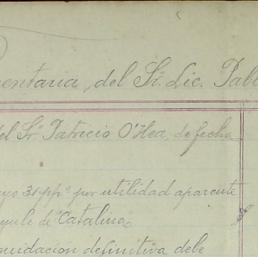 mentaria, del Sr. Lic. Pabl
del Sr. Patricio O'Hea, de fecha
31 pp. por utilidad aparente
de "Catalina"
quidacion definitiva debe